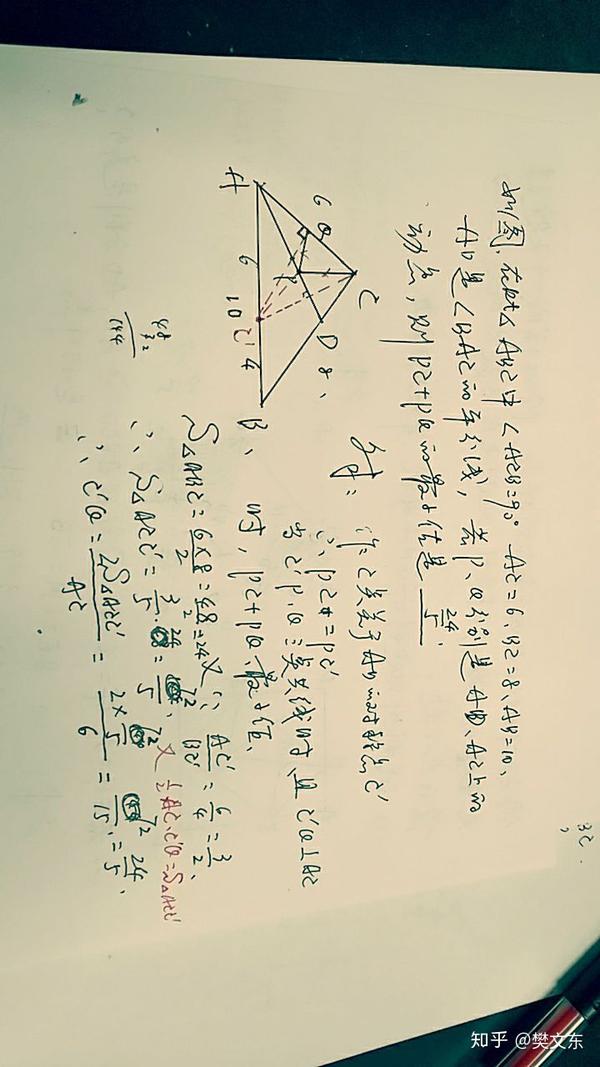 如图,在Rt△ABC中∠ACB=90° AC=6、BC=8、AB=10、
AD是∠BAC的平分线,若P、Q分别是AD、AC上的
动点,则PC+PQ的最小值是 24/5.
A
6
Q
C
P
D
8、
6
10
C'
4
B
解:作C点关于AD的对称点C'
∴PC=PC'
当C'P、Q三点共线时,且C'Q⊥AC
时,PC+PQ最小值、
S△ABC=6×8/2=48/2=24 又∵ AC'/BC'=6/4=3/2、
∴S△ACC'=3/5·24=72/5、又 1/2AC·C'Q=S△ACC'
∴C'Q=2S△ACC'/AC=2×72/5/6=72/15=24/5、
48
32
144
BC.
知乎 @樊文东